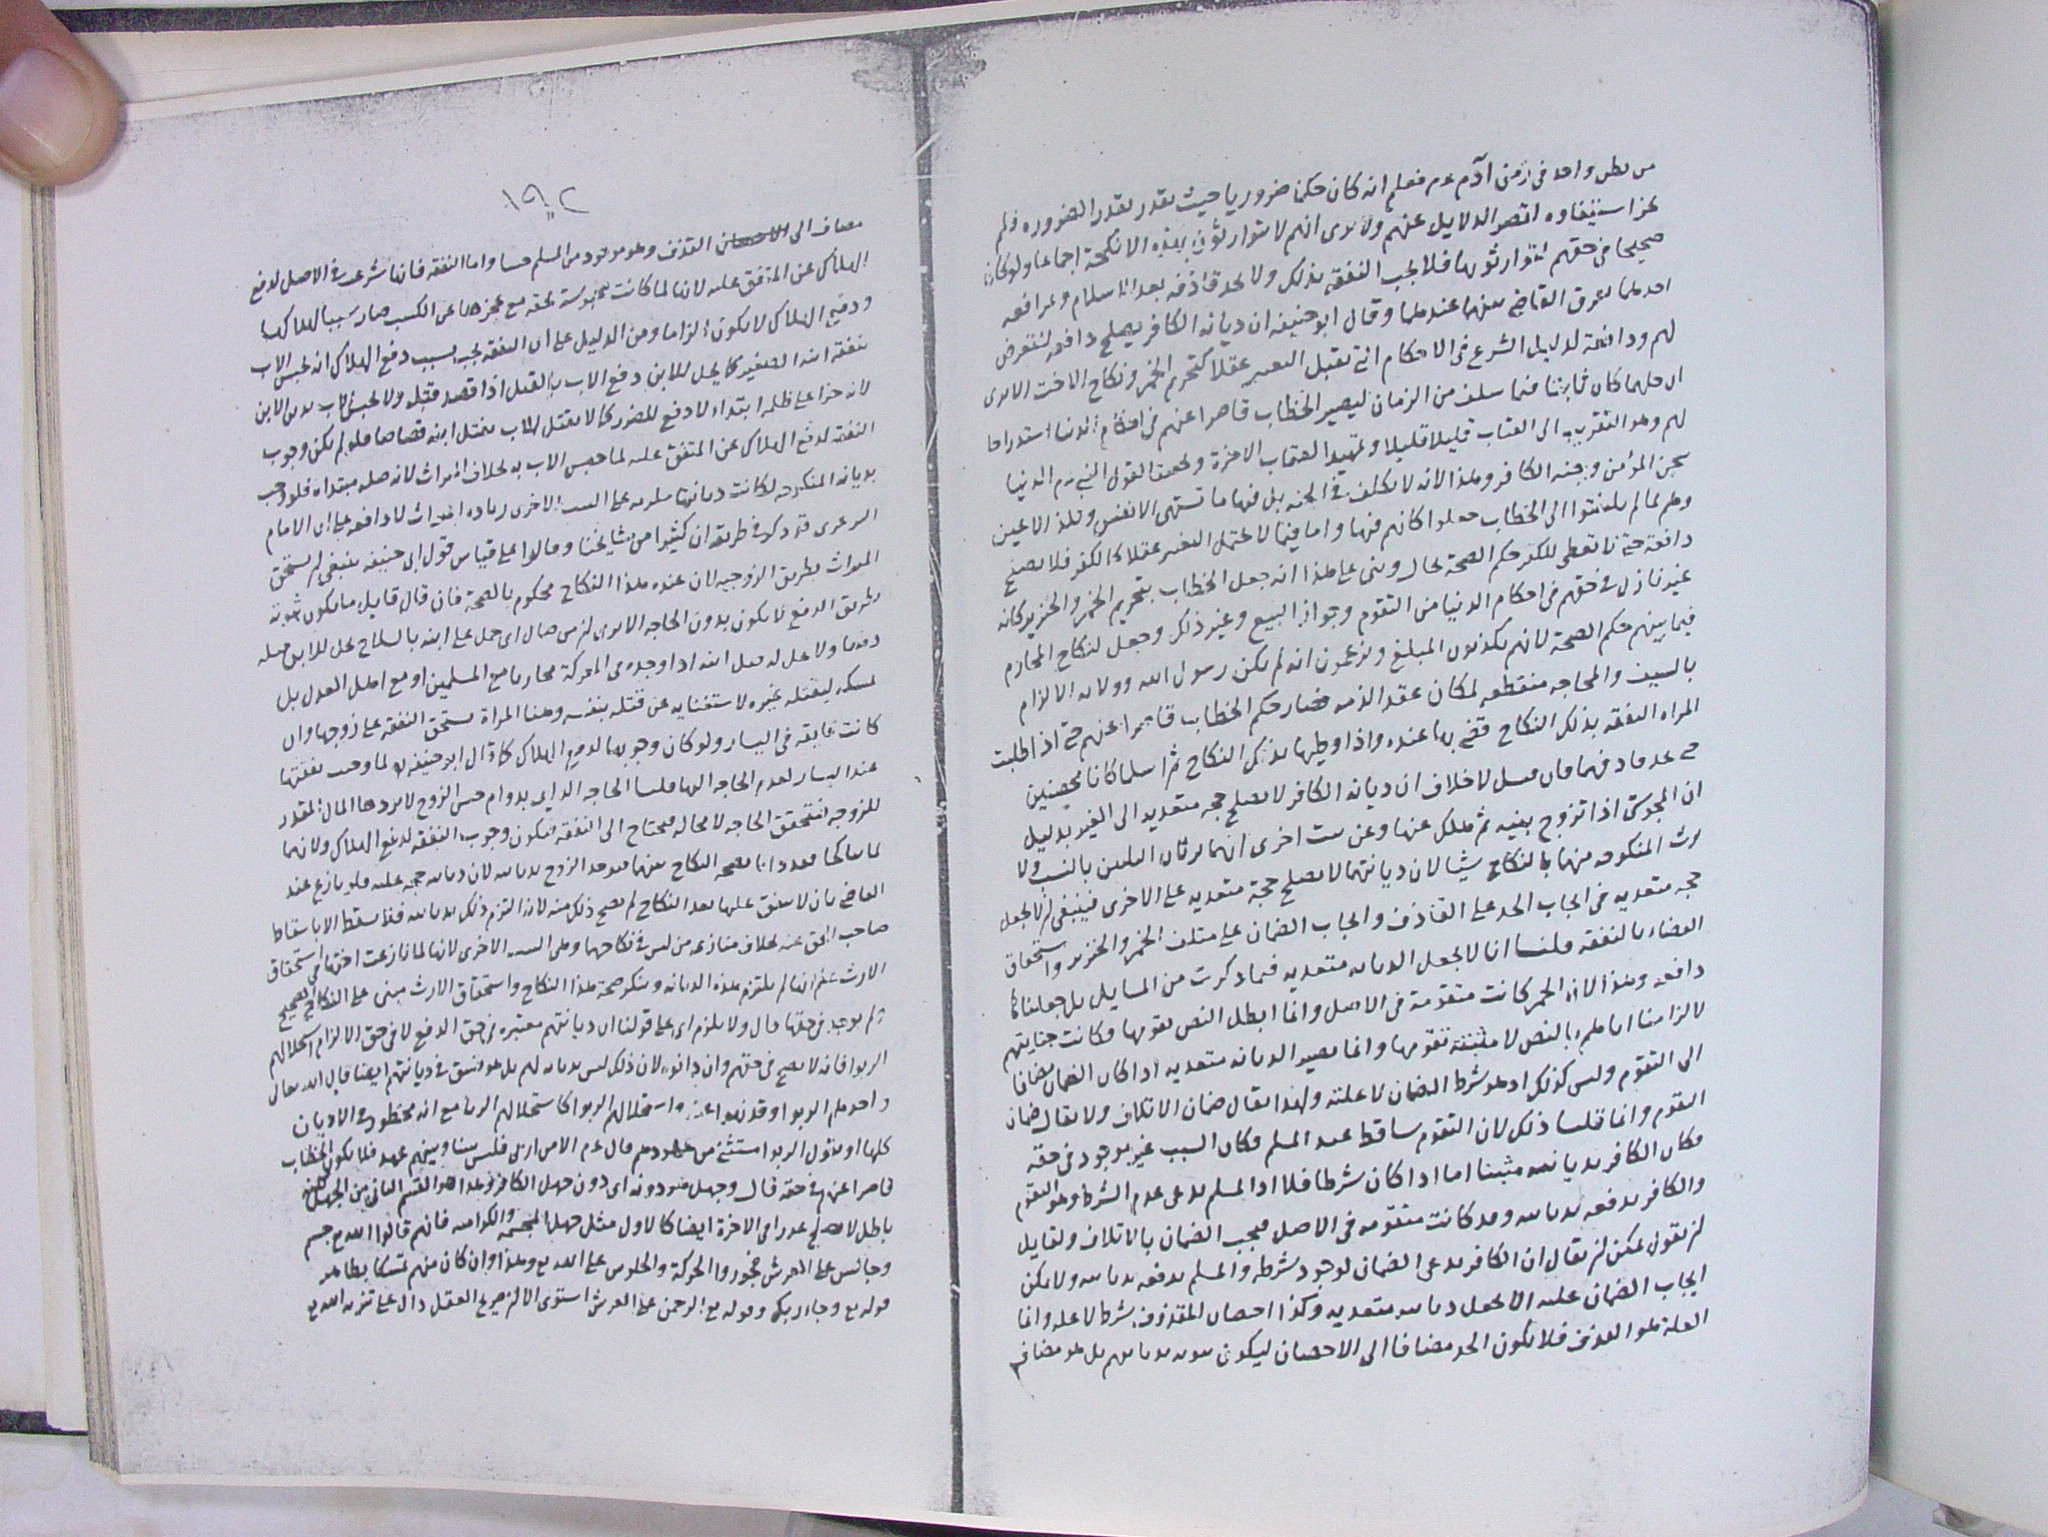 من بطن واحد في زمن آدم عم فعلم انه كان حكما ضروريا حيث تقدر بقدر الضروره فلم
عزا ستيفاوه لقصر الدلايل عنهم ولا يرى انهم لا يتوارثون بهذه الانكحة اجماعا ولو كان
صحيحا في حقهم لتوارثوا بها فلا يجب النفقه بذلك ولا يحد قاذفه بعد الاسلام ولو رافعه
احدهما لفرق القاضي بينهما عندهما وقال ابو حنيفه ان ديانه الكافر يصلح دافعه لتعرض
لهم ودافعة لدليل الشرع في الاحكام التي تقبل التغيير عقلا كتحريم الخمر ونكاح الاخت الا يرى
ان حلهما كان ثابتا فيما سلف من الزمان ليصير الخطاب قاصرا عنهم في احكام الدنيا استدراجا
لهم وهو التقريب الى العقاب قليلا قليلا وتمهيدا لعقاب الاخرة وتحقيقا لقول النبي عم الدنيا
سجن المؤمن وجنه الكافر وهذا لانه لا تكلف في الجنه بل فيها ما تشتهي الانفس وتلذ الاعين
وهم لما لم يلتفتوا الى الخطاب جعلوا كانهم فيها واما فيما لا يحتمل التغيير عقلا كالكفر فلا يصلح
دافعة حتى لا تعطى للكفر حكم الصحة بحال وبنى على هذا انه جعل الخطاب بتحريم الخمر والخنزير كانه
غير نازل في حقهم في احكام الدنيا من التقوم وجواز البيع وغير ذلك وجعل لنكاح المحارم
فيما بينهم حكم الصحة لانهم يكذبون المبلغ ويزعمون انه لم يكن رسول الله وولايه الالزام
بالسيف والمحاجه منقطعه لمكان عقد الذمه فصار حكم الخطاب قاصرا عنهم حتى اذا طلبت
المراه النفقه بذلك النكاح قضى بها عنده واذا وطيها بذلك النكاح ثم اسلما كانا محصنين
حتى يحد قاذفهما فان قيل لا خلاف ان ديانه الكافر لا يصلح حجه متعديه الى الغير بدليل
ان المجوسي اذا تزوج بنته ثم هلك عنها وعن بنت اخرى انهما يرثان الثلثين بالنسب ولا
يرث المنكوحه منهما بالنكاح شيا لان ديانتها لا يصلح حجة متعديه على الاخرى فينبغي ان لا يجعل
حجه متعديه في ايجاب الحد على القاذف وايجاب الضمان على متلف الخمر والخنزير واستحقاق
القضاء بالنفقه قلنا انا لا نجعل الديانه متعديه فيما ذكرت من المسايل بل جعلناها
دافعه وهذا لان الخمر كانت متقومة في الاصل وانما ابطل النص تقومها وكانت جنايتهم
لالزامنا اياهم بالنص لا مثبتة تقومها وانما يصير الديانه متعديه اذا كان الضمان مضافا
الى التقوم وليس كذلك اذ هو شرط الضمان لا علته ولهذا يقال ضمان الاتلاف ولا يقال ضمان
التقوم وانما قلنا ذلك لان التقوم ساقط عند المسلم فكان السبب غير موجود في حقه
فكان الكافر بديانته مثبتا اما اذا كان شرطا فلا اذ المسلم يدعي عدم الشرط وهو التقوم
والكافر يدفعه بديانته وقد كانت متقومه في الاصل فيجب الضمان بالاتلاف ولقايل
ان يقول يمكن ان يقال ان الكافر يدعي الضمان لوجود شرطه والمسلم يدفعه بديانته ولا يمكن
ايجاب الضمان عليه الا بجعل ديانته متعديه وكذا احصان المقذوف شرط لا عله وانما
العلة هو القذف فلا يكون الحد مضافا الى الاحصان ليكون ثبوته بديانتهم بل هو مضاف
١٩٢
مضاف الى القذف وهو موجود من المسلم حسا واما النفقه فانها شرعت في الاصل لدفع
الهلاك عن المنفق عليه لانها لما كانت محبوسة بحقه مع عجزها عن الكسب صار سببا لهلاكها
ودفع الهلاك لا يكون الزاما ومن الدليل على ان النفقه يجب بسبب دفع الهلاك انه يحبس الاب
بنفقه ابنه الصغير كما يحل للابن دفع الاب بالقتل اذا قصد قتله ولا يحبس الاب بدين الابن
لانه جزا على ظلمه ابتداء لا دفع للضرر كما لا يقتل الاب بقتل ابنه قصاصا فلو لم يكن وجوب
النفقه لدفع الهلاك عن المنفق عليه لما حبس الاب به بخلاف الميراث لانه صله مبتداه فلو وجب
بديانه المنكوحه لكانت ديانتها ملزمه على البنت الاخرى زياده الميراث لا دافعه على ان الامام
البرغرى قد ذكر في طريقه ان كثيرا من مشايخنا وقالوا على قياس قول ابي حنيفه ينبغي ان يستحق
الميراث بطريق الزوجيه لان عنده هذا النكاح محكوم بالصحة فان قال قايل ما يكون ثبوته
بطريق الدفع لا يكون بدون الحاجه الا يرى ان من صال اي حمل على ابنه بالسلاح يحل للابن قتله
دفعا ولا يحل له قتل ابنه اذا وجده في المعركة محاربا مع المسلمين او مع اهل العدل بل
يمسكه ليقتله غيره لاستغنايه عن قتله بنفسه وهنا المراة يستحق النفقه على زوجها وان
كانت فايقه في اليسار ولو كان وجوبها لدفع الهلاك كما قال ابو حنيفه لما وجب نفقتها
عند اليسار لعدم الحاجه اليها قلنا الحاجه الدايمه بدوام حبس الزوج لا يردها المال المقدر
للزوجه فتتحقق الحاجه لا محاله فيحتاج الى النفقه فيكون وجوب النفقه لدفع الهلاك ولانهما
لما تناكحا فقد دانا بصحه النكاح بينهما فيوخذ الزوج بديانته لان ديانته حجه عليه فلو نازع عند
القاضي بان لا ينفق عليها بعد النكاح لم يصح ذلك منه لانه التزم ذلك بديانته فلا يسقط الا باسقاط
صاحب الحق عنه بخلاف منازعه من ليس في نكاحهما وهي البنت الاخرى لانها لما نازعت اختها في استحقاق
الارث علم انها لم يلتزم هذه الديانه وينكر صحة هذا النكاح واستحقاق الارث مبنى على النكاح الصحيح
ولم يوجد في حقها قال ولا يلزم اي على قولنا ان ديانتهم معتبره في حق الدفع لا في حق الالزام استحلالهم
الربوا فانه لا يصح في حقهم وان دانوه لان ذلك ليس بديانه لهم بل هو فسق في ديانتهم ايضا قال الله تعالى
واخذهم الربوا وقد نهوا عنه واستحلالهم الربوا كاستحلالهم الزنا مع انه محظور في الاديان
كلها او نقول الربوا مستثنى من عهودهم قال عم الا من اربى فليس بيننا وبينهم عهد فلا يكون الخطاب
قاصرا عنهم في حقه قال وجهل هو دونه اي دون جهل الكافر وهذا هو القسم الثاني من الجهل لكنه
باطل لا يصلح عذرا في الاخرة ايضا كالاول مثل جهل المجسمه والكراميه فانهم قالوا الله تع جسم
وجالس على العرش فجوزوا الحركة والجلوس على الله تع وهذا وان كان منهم تمسكا بظاهر
قوله تع وجاء ربك وقوله تع الرحمن على العرش استوى الا ان صريح العقل دال على تنزيه الله تع